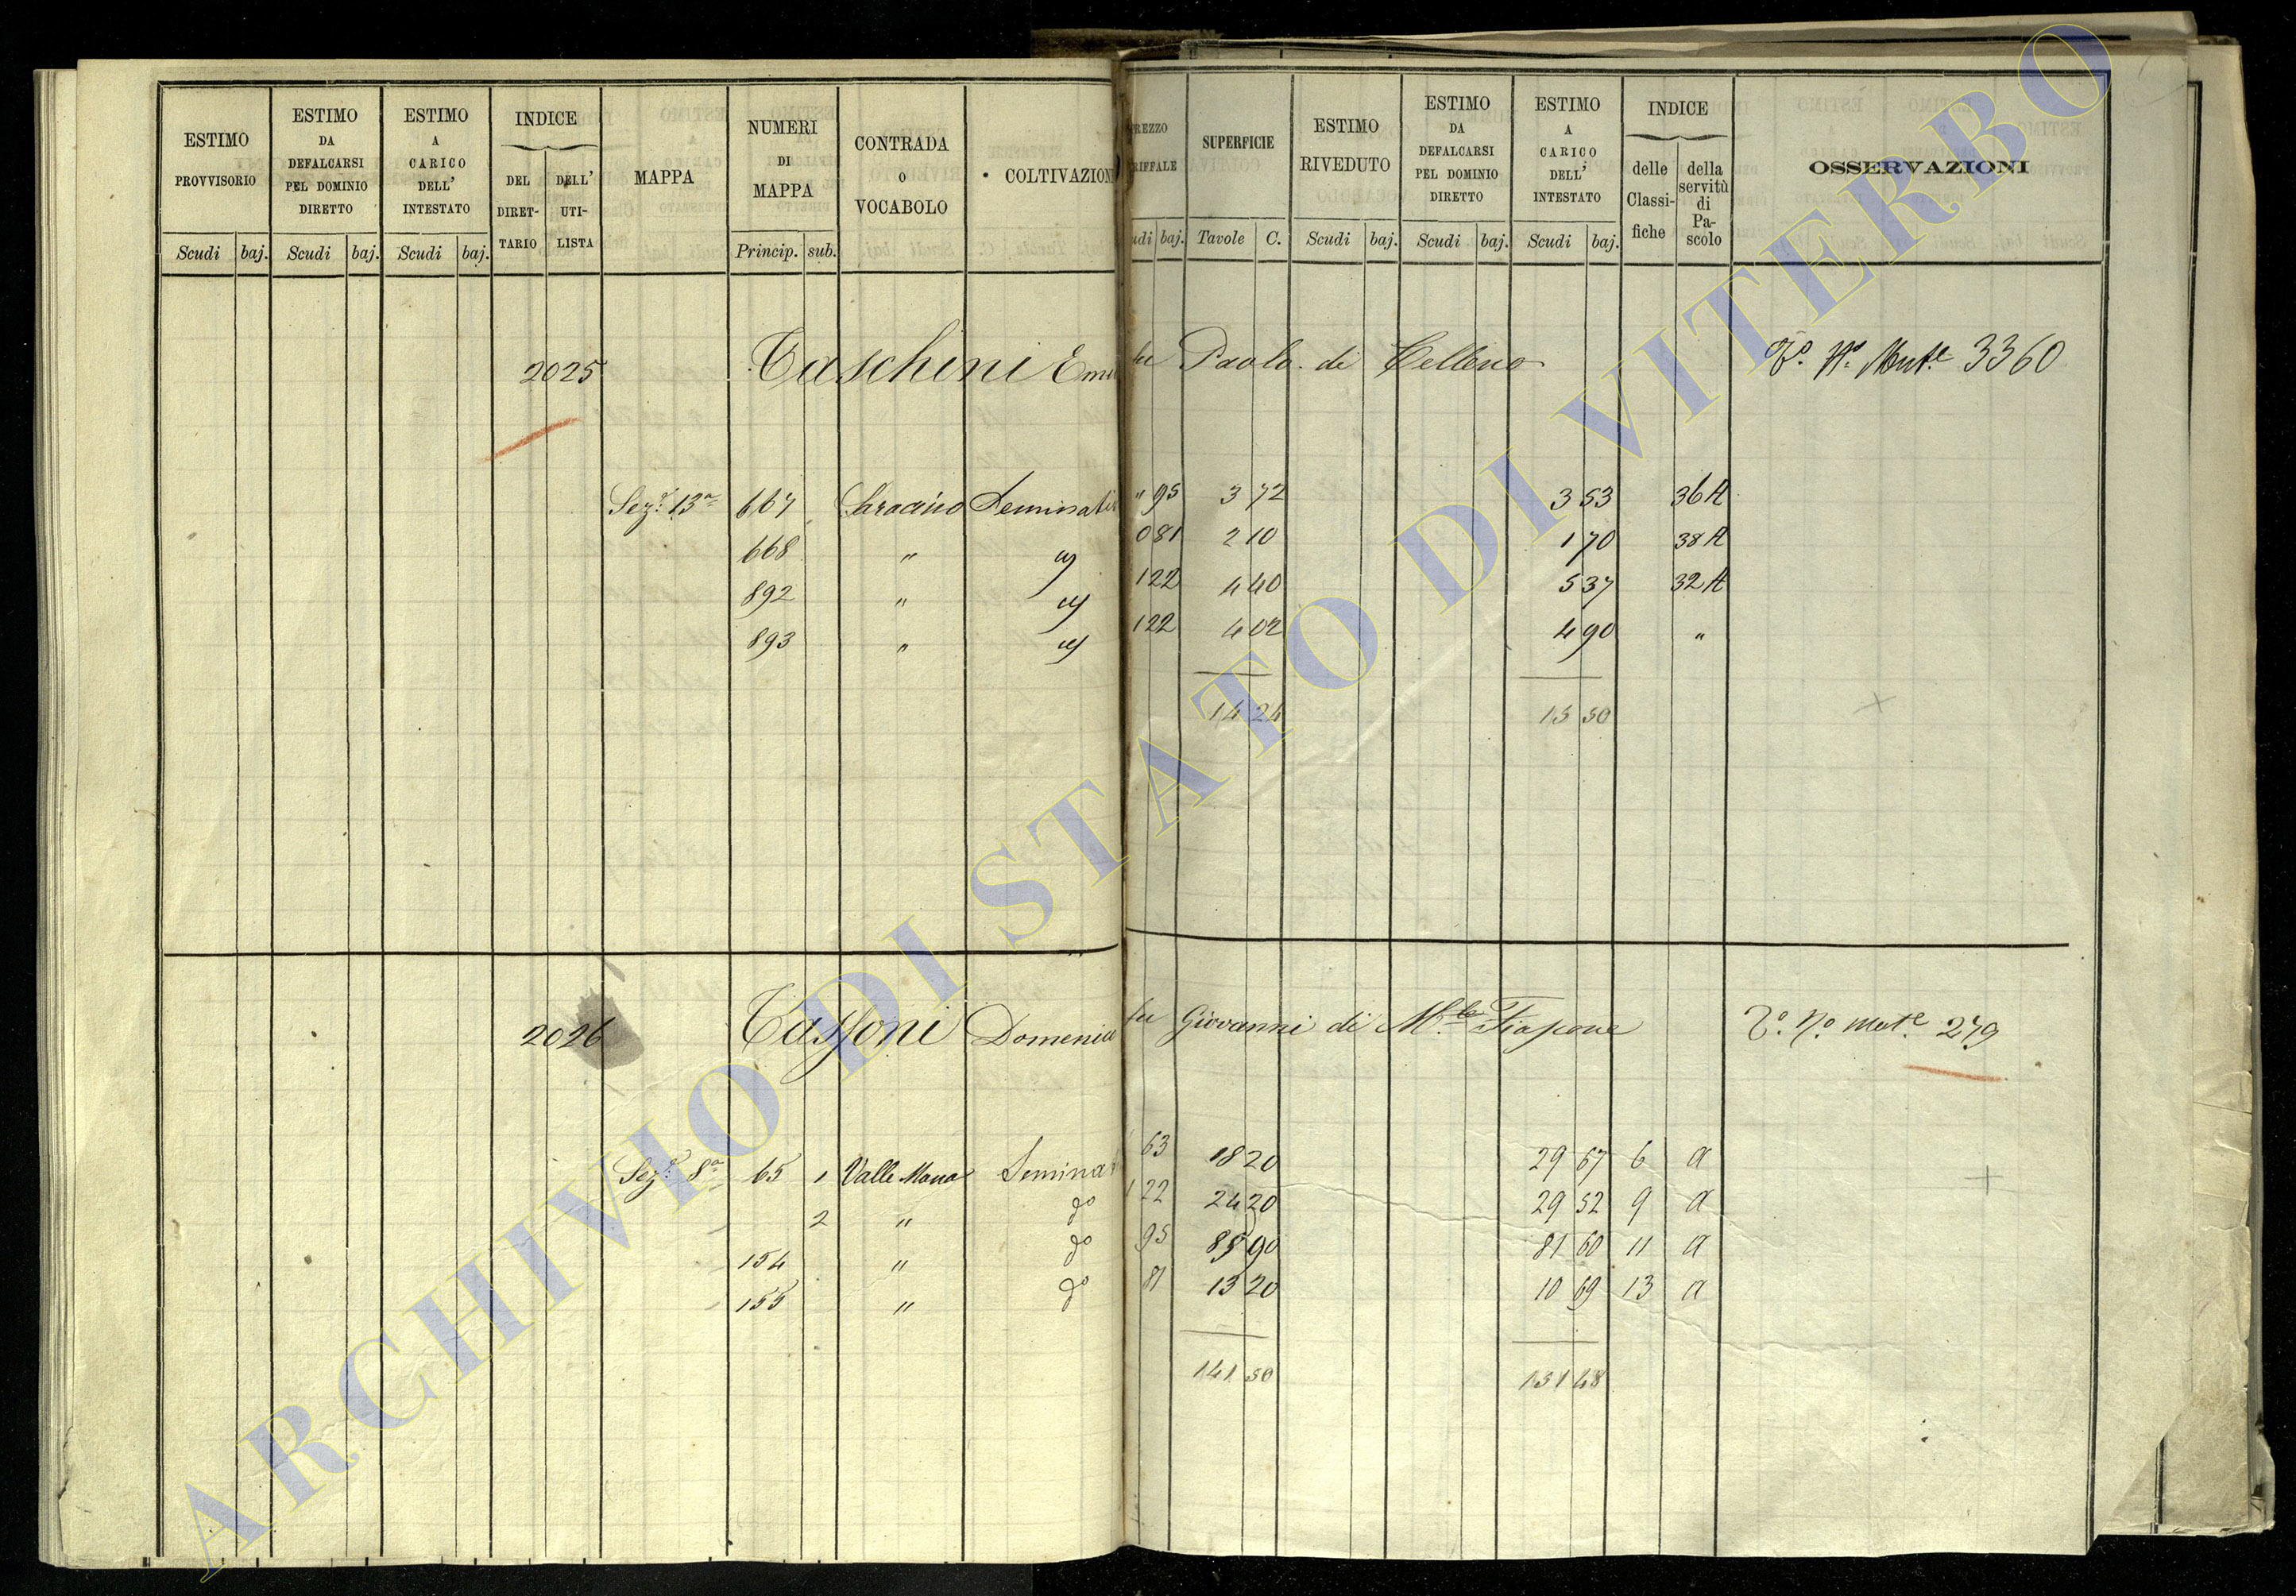 ESTIMO PROVVISORIO
ESTIMO DA DEFALCARSI PEL DOMINIO DIRETTO
ESTIMO A CARICO DELL' INTESTATO
INDICE
DEL DIRET-TARIO
DELL' UTI-LISTA
MAPPA
NUMERI DI MAPPA
CONTRADA O VOCABOLO
COLTIVAZION
REZZO RIFFALE
SUPERFICIE
ESTIMO RIVEDUTO
ESTIMO DA DEFALCARSI PEL DOMINIO DIRETTO
ESTIMO A CARICO DELL' INTESTATO
INDICE
delle Classi-fiche
della servitù di Pa-scolo
OSSERVAZIONI
Scudi baj. Scudi baj. Scudi baj. Princip. sub. udi baj. Tavole C. Scudi baj. Scudi baj. Scudi baj.
2025 Taschini Emi fu Paolo di Celleno Tº Nº Mute 3360
Sez.e 13a 667 Saracino Seminati " 95 3 72 3 53 36 A
668 " " 0 81 2 10 1 70 38 A
892 " " 1 22 4 40 5 37 32 A
893 " " 1 22 4 02 4 90 "
14 24 15 50
2026 Tassoni Domenic fu Giovanni di M.te Fiascone Tº Nº Mute 279
Sez.e 8a 65 1 Valle Mona Seminat 63 18 20 29 67 6 a
2 " do 1 22 24 20 29 52 9 a
154 " do 95 85 90 81 60 11 a
155 " do 81 13 20 10 69 13 a
141 50 151 48
ARCHIVIO DI STATO DI VITERBO